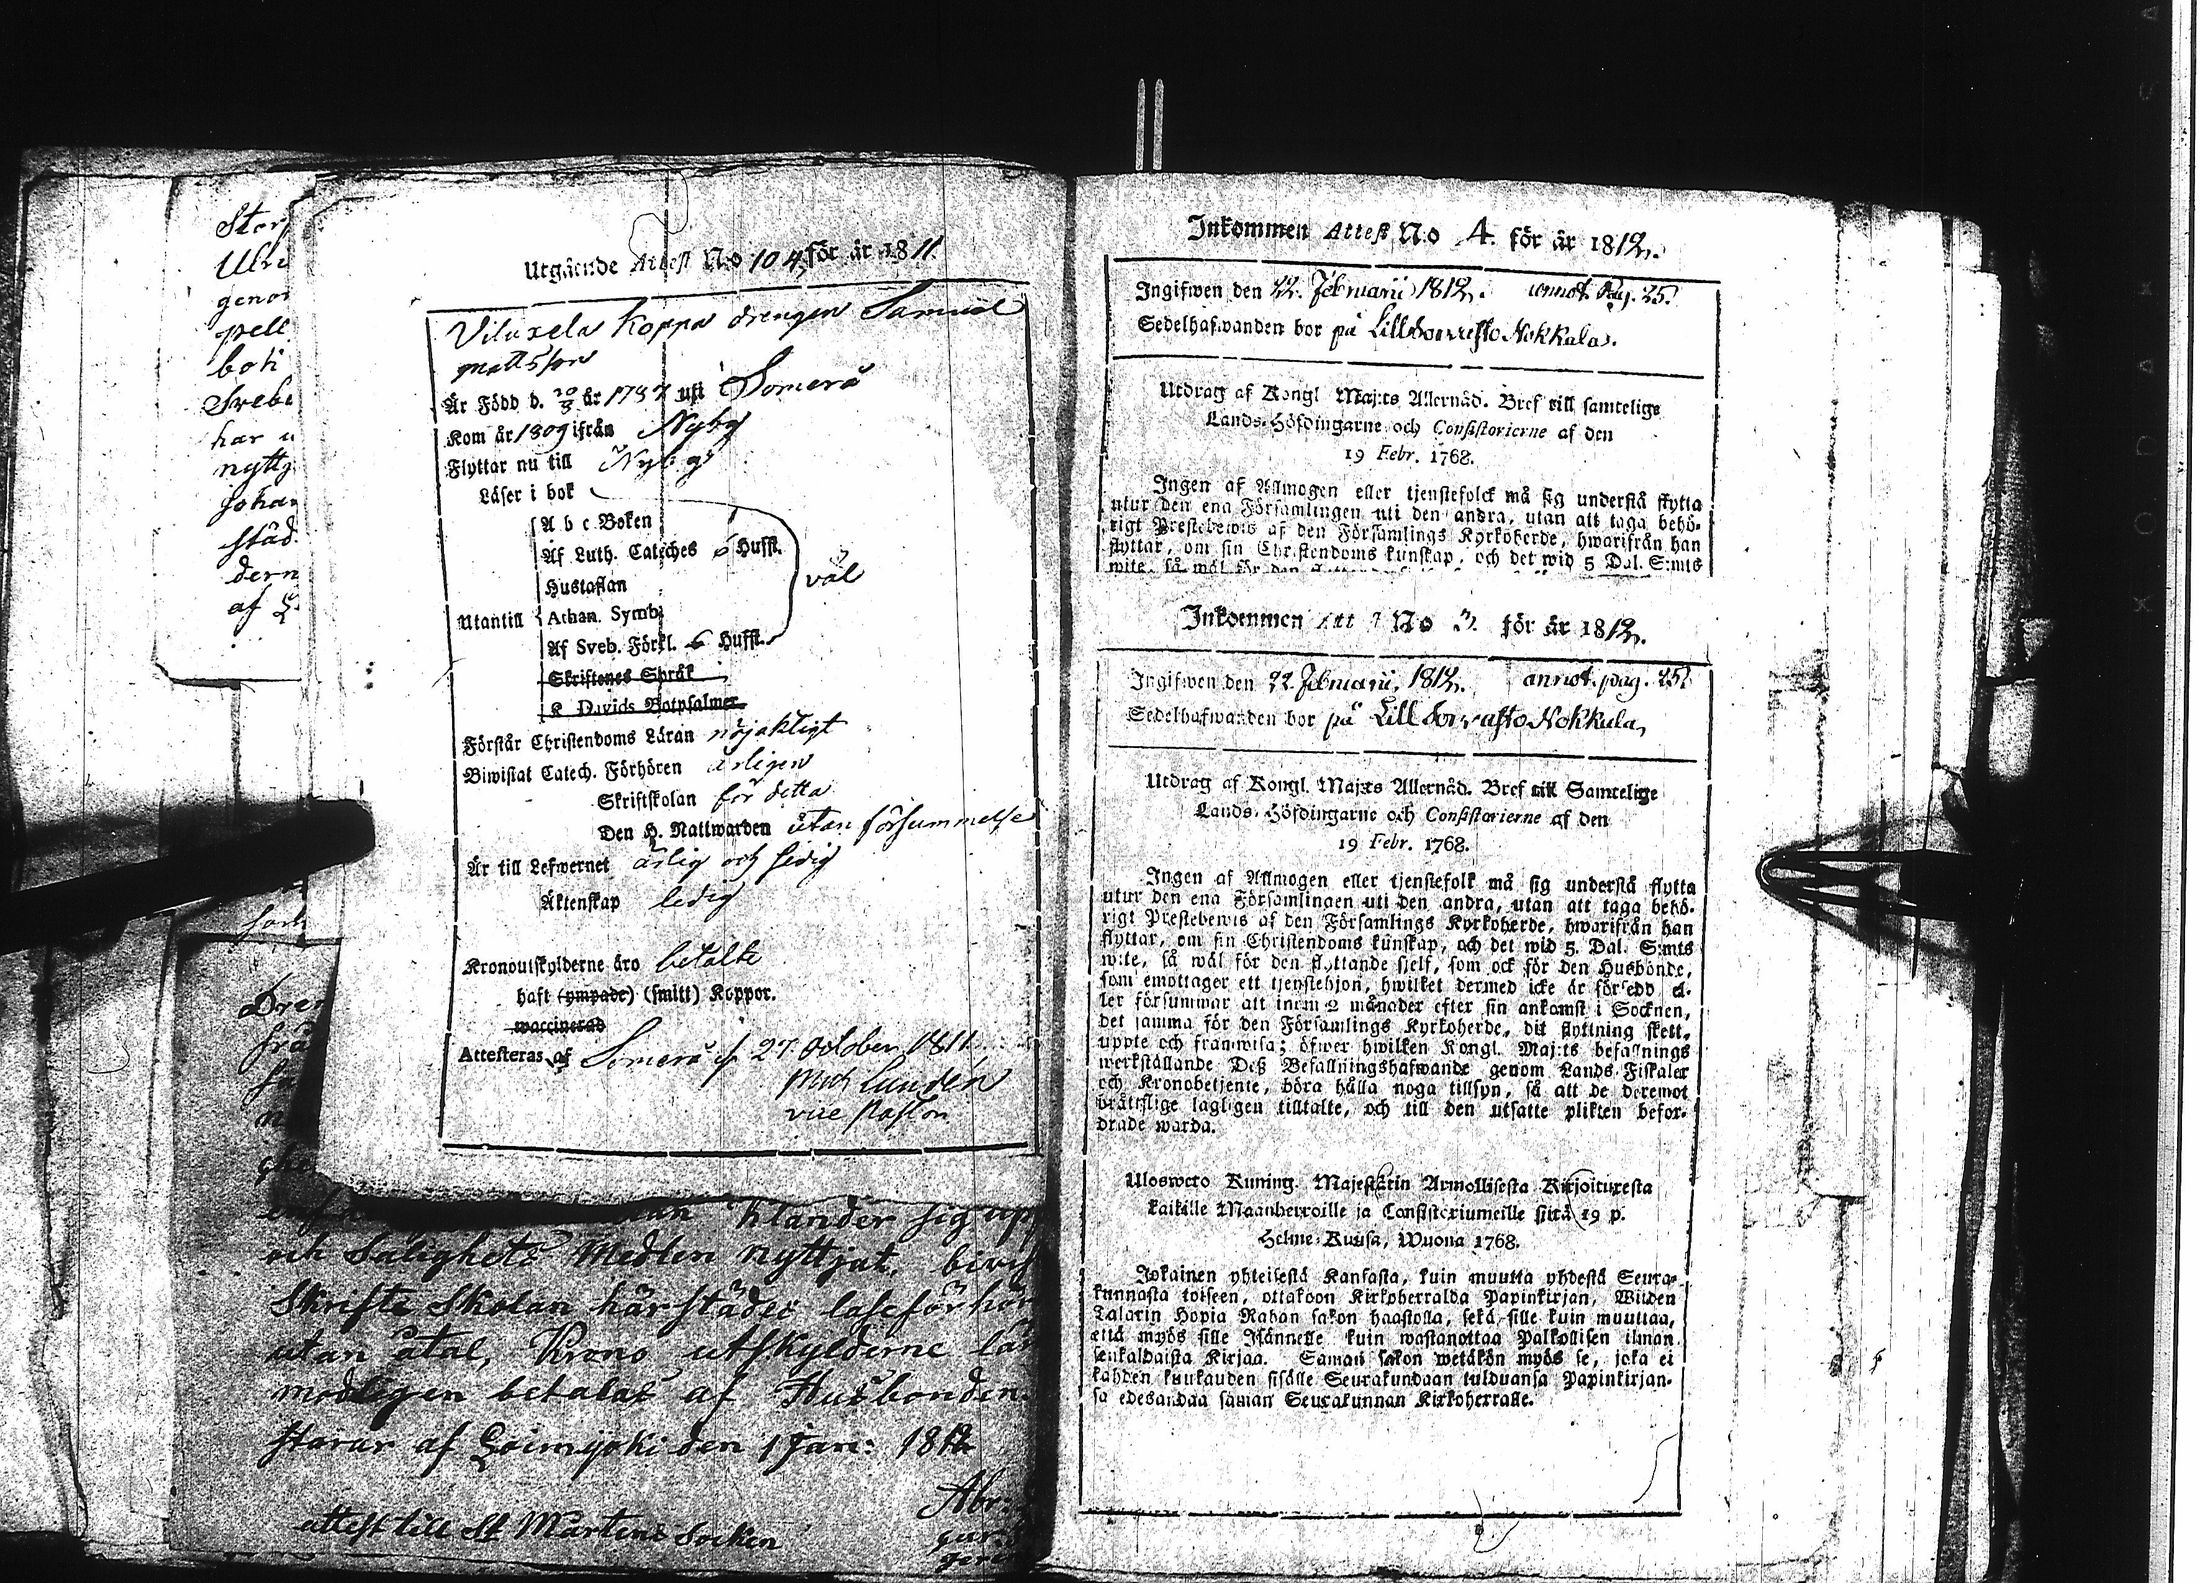 Stor
Ulri
genor
pell
boti
Sveb
har u
nyttj
Johan
städ
dern
af L
Utgående Attest N:o 104 för år 1811.
Viluxela Koppa drengen Samuel
Mattsson
Är Född d. 20/3 år 1787 uti Somero
Kom år 1809 ifrån Nyby
Flyttar nu till Nyby
Läser i bok
A b c Boken
Af Luth. Cateches 6 Hufst.
Hustaflan
väl
Utantill Athan. Symb.
Af Sveb. Förkl. 6 Hufst.
Skriftenes Språk
K Davids Botpsalmer
Förstår Christendoms Läran nöjaktigt
Biwistat Catech. Förhören årligen
Skriftskolan för detta
Den H. Nattwarden utan försummelse
Är till Lefwernet ärlig och sedig
Äktenskap ledig
Kronoutskylderne äro betalte
haft (ympade) (smitt) Koppor.
waccinerad
Attesteras af Somero d. 27 October 1811.
Mich Lundén
vice Pastor
och Salighets Medlen nyttjat, bivis
Skrifte Skolan härstädes läseförhör
utan åtal, Krono utskylderne lär
modligen betalas af Husbonden.
storar af Loimjoki den 1 Jan: 1812
Abr:
attest till St Mårtens Socken
Inkommen Attest N:o 4. för år 1812.
Ingifwen den 22. Februarii 1812. annot. pag. 25.
Sedelhafwanden bor på Lill Sorvasto Nokkala.
Utdrag af Kongl Maj:ts Allernåd. Bref till samtelige
Lands-Höfdingarne och Consistorierne af den
19 Febr. 1768.
Ingen af Allmogen eller tjenstefolck må sig understå flytta
utur den ena Församlingen uti den andra, utan att taga behö-
rigt Prestebewis af den Församlings Kyrkoherde, hwarifrån han
flyttar, om sin Christendoms kunskap, och det wid 5 Dal. S:mts
wite, så wäl för den
Inkommen Att N:o 3. för år 1812.
Ingifwen den 22 Februarii, 1812. annot. pag. 25.
Sedelhafwanden bor på Lill Sorvasto Nokkala,
Utdrag af Kongl. Maj:ts Allernåd. Bref till Samtelige
Lands-Höfdingarne och Consistorierne af den
19 Febr. 1768.
Ingen af Allmogen eller tjenstefolk må sig understå flytta
utur den ena Församlingen uti den andra, utan att taga behö-
rigt Prestebewis af den Församlings Kyrkoherde, hwarifrån han
flyttar, om sin Christendoms kunskap, och det wid 5. Dal. S:mts
wite, så wäl för den flyttande sjelf, som ock för den Husbonde,
som emottager ett tjenstehjon, hwilket dermed icke är försedd el-
ler försummar att inom 2 månader efter sin ankomst i Socknen,
det samma för den Församlings Kyrkoherde, dit flyttning skett,
uppte och framwisa; öfwer hwilken Kongl. Maj:ts befallnings
werkställande Deß Befallningshafwande genom Lands Fiskaler
och Kronobetjente, böra hålla noga tillsyn, så att de deremot
bråttslige lagligen tilltalte, och till den utsatte plikten befor-
drade warda.
Ulosweto Kuning. Majestätin Armollisesta Kirjoituxesta
kaikille Maanherroille ja Consistoriumeille siitä 19 p.
Helme-Kuusa, Wuona 1768.
Jokainen yhteisestä Kansasta, kuin muutta yhdestä Seura-
kunnasta toiseen, ottakoon Kirkoherralda Papinkirjan, Wiiden
Talarin Hopia Rahan sakon haastolla, sekä sille kuin muuttaa,
että myös sille Isännelle kuin wastanottaa Palkollisen ilman
senkaldaista Kirjaa. Saman sakon wetäkön myös se, joka ei
kahden kuukauden sisälle Seurakundaan tulduansa Papinkirjan-
sa edesandaa saman Seurakunnan Kirkoherralle.